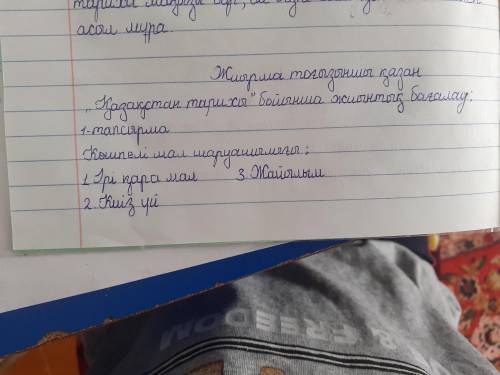 тарихи маңызы бар,
асол мұра.
Жиырма тоғызыншы қазан
„Қазақстан тарихы" бойынша жиынтық бағалау:
1-тапсырма
Көшпелі мал шаруашылығы:
1. Ірі қара мал 3. Жайылым
2. Киіз үй
& FREEDOM